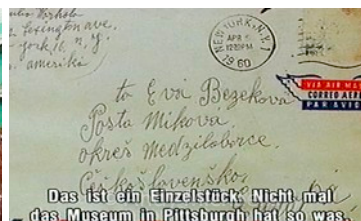 Julia Warhola
Lexington ave.
york 16 n. y.
amerika
NEW YORK, N.Y. 1
APR
12:30PM
1960
VIA AIR MAIL
CORREO AEREO
PAR AVION
to Eva Bezekova
Posta Mikova
okres Medzilaborce.
Československo.
Das ist ein Einzelstück. Nicht mal
das Museum in Pittsburgh hat so was.